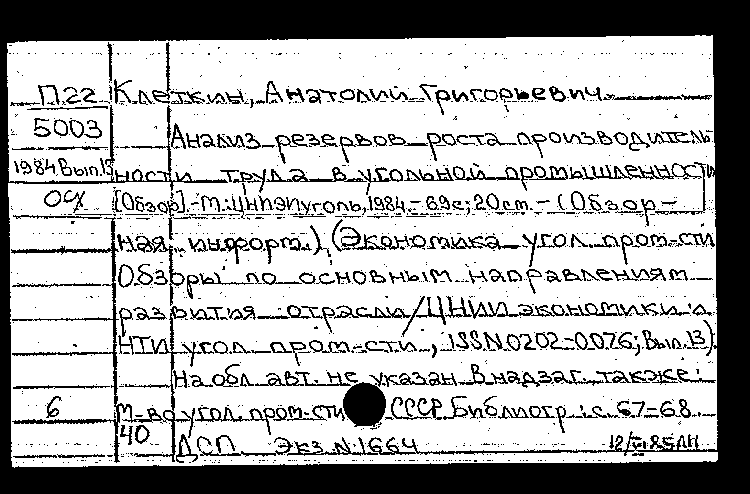 П22 Клеткин, Анатолий Григорьевич.
5003 Анализ резервов роста производитель
1984 Вып.13 ности труда в угольной промышленности
ОХ [Обзор].-М.:ЦНИЭИуголь, 1984.- 69с; 20см. - (Обзор-
ная информ.) (Экономика угол. пром-сти
Обзоры по основным направлениям
развития отрасли/ЦНИИ экономики и
НТИ угол. пром-сти, ISSN 0202-0076; Вып. 13).
На обл. авт. не указан. В надзаг. также:
6 М-во угол. пром-сти СССР. Библиогр.: с. 67-68
40 ДСП. Экз. N.1664